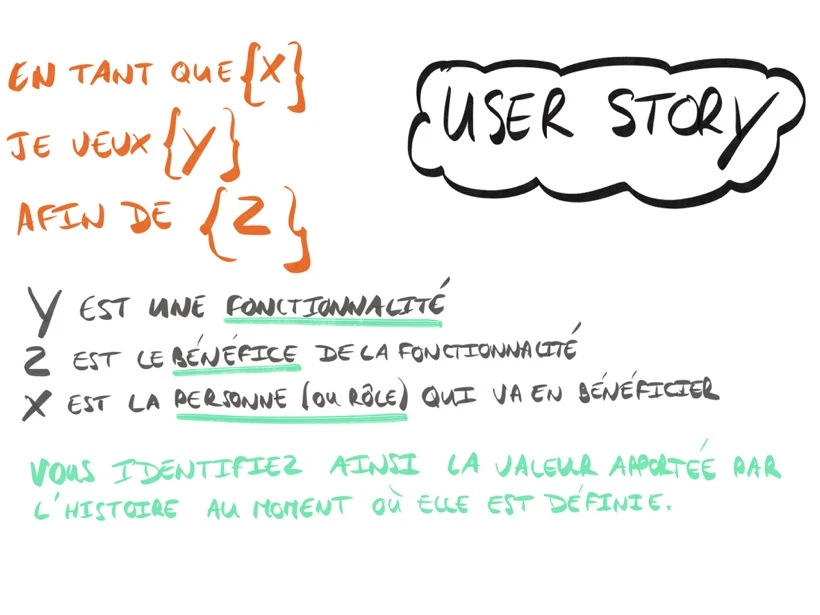 EN TANT QUE {X}
JE VEUX {Y}
AFIN DE {Z}
USER STORY
Y EST UNE FONCTIONNALITÉ
Z EST LE BÉNÉFICE DE LA FONCTIONNALITÉ
X EST LA PERSONNE (OU RÔLE) QUI VA EN BÉNÉFICIER
VOUS IDENTIFIEZ AINSI LA VALEUR APPORTÉE PAR
L'HISTOIRE AU MOMENT OÙ ELLE EST DÉFINIE.